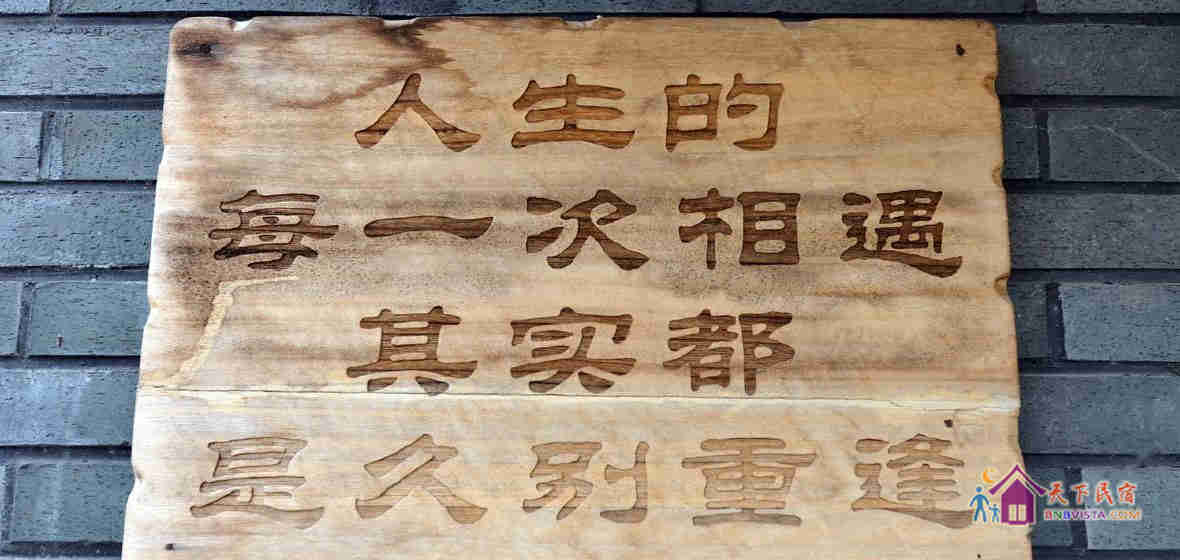 人生的
每一次相遇
其实都
是久别重逢
天下民宿
BNBVISTA.COM